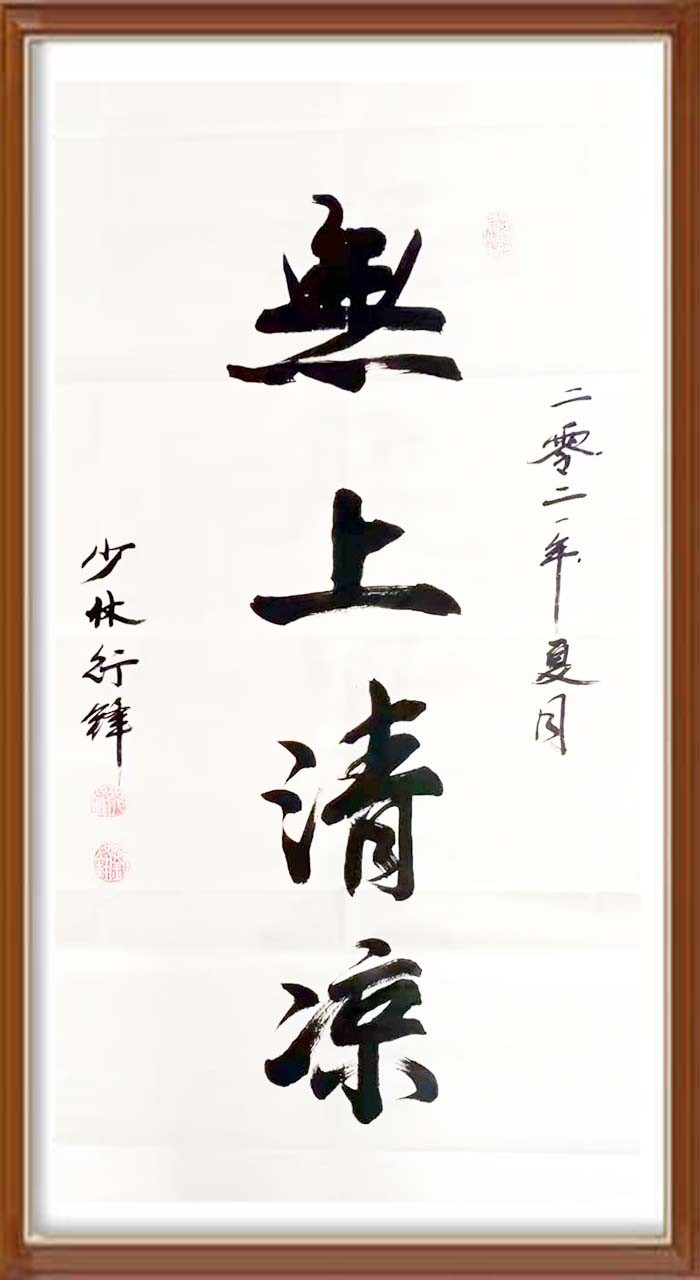 二零二一年夏月
無上清凉
少林行鋒